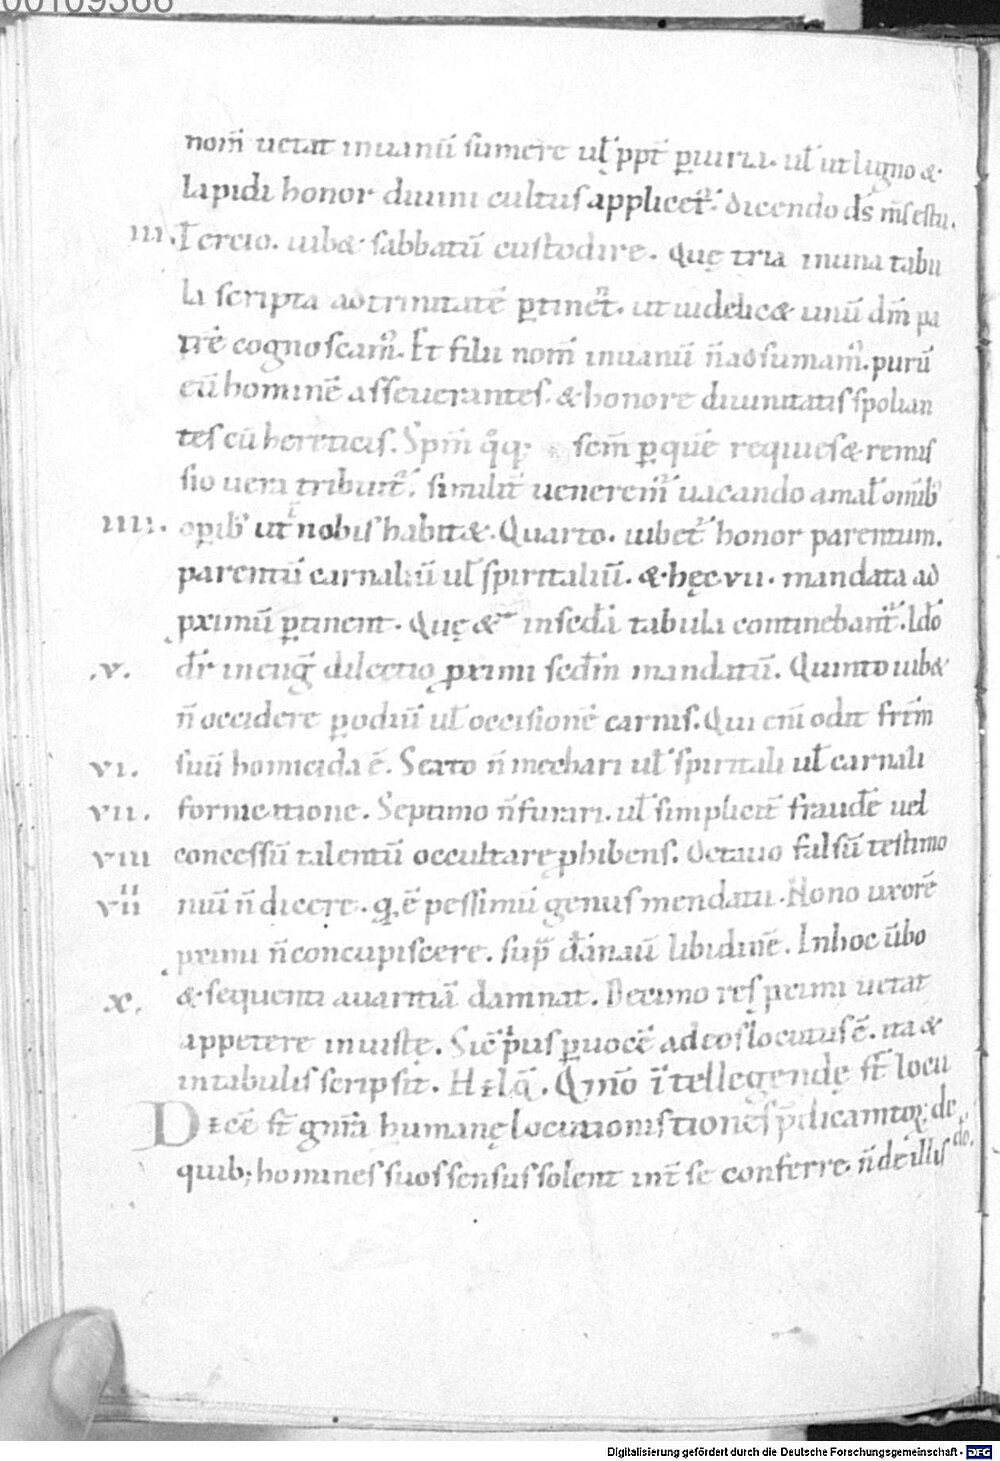 00109366
nom̅ uetat inuanū sumere ul̵ ꝓpt̅ ꝑiuria. ul̵ ut ligno &
lapidi honor diuini cultus applicet᷑. dicendo ds̅ m̅s estu.
III. Tercio. iub& sabbatū custodire. Quę tria inuna tabu
la scripta adtrinitatē ꝑtinet᷑. ut uidelic& unū dm̅ pa
trē cognoscam᷒. Et filii nom̅ inuanū n̅ adsumam᷒. purū
eū hominē asseuerantes. & honore diuinitatis spolian
tes cū hereticis. Spm̅ qͦq; scm̅ ꝑquē requies & remis
sio uera tribuit᷑. similit̅ uenerem᷒ uacando amal̵ omib᷒
IIII. oꝑib᷒ ut nobis habit&. Quarto. iubet᷑ honor parentum.
parentū carnaliū ul̵ spiritaliū. & hęc VII. mandata ad
ꝓximū ꝑtinent. Quę & insecd̅a tabula continebant᷑. Ideo
V. dr̅ ineug̅ dilectio ꝓximi secd̅m mandatū. Quinto iub&
n̅ occidere ꝑodiū ul̵ occisionē carnis. Qui eni̅ odit frm̅
VI. suū homicida ē. Sexto n̅ mechari ul̵ spiritali ul̵ carnali
VII. fornicatione. Septimo n̅ furari. ul̵ simplicit̅ fraudē uel
VIII concessū talentū occultare ꝓhibens. Octauo falsū testimo
VIIII niū n̅ dicere. q. ē pessimū genus mendatii. Nono uxorē
ꝓximi n̅ concupiscere. sup̅ dānauū libidinē. Inhoc u̅bo
X. & sequenti auaritiā damnat. Decimo res ꝓximi uetat
appetere iniuste. Sic̅ p̅us ꝑuocē ad eos locutus ē. ita &
intabulis scripsit. Qm̅o i̅tellegendę st̅ locu
Dicē st̅ gn̅ra humanę locutionis tiones p̅dicamtoꝝ de dō.
quib; homines suos sensus solent int̅ se conferre. n̅ de illis
Digitalisierung gefördert durch die Deutsche Forschungsgemeinschaft - DFG